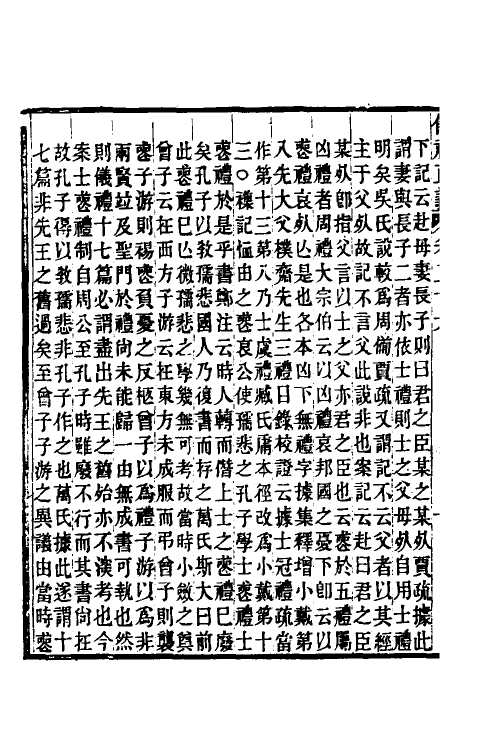 下記云赴母妻長子則曰君之臣某之某𣦸賈疏據此
謂妻與長子二者亦依士禮則士之父母𣦸自用士禮
明矣吳氏説較爲周僃賈疏又謂記不云父者以其經
主于父𣦸故記不言父此說非也案記云赴曰君之臣
某𣦸卽指父言以士之父亦君之臣也云喪於五禮屬
凶禮者周禮大宗伯云以凶禮哀邦國之憂下卽云以
喪禮哀𣦸亾是也各本凶下無禮字據集釋增小戴第
入先大父樸齋先生三禮目錄校證云據士冠禮疏當
作第十三第八乃士虞禮臧氏庸本徑改爲小戴第十
三○襍記恤由之喪哀公使孺悲之孔子學士喪禮士
喪禮於是乎書鄭注云時人轉而僭上士之喪禮已廢
矣孔子以敎孺悲國人乃復書而存之萬氏斯大曰前
此喪禮已亾微孺悲之學幾無可考故當時小斂之奠
曾子云在西方子游云在東方未成服而弔曾子則襲
裘子游則裼裘負夏之反柩曾子以爲禮子游以爲非
兩賢竝及聖門於禮尙未能歸一由無成書可執也然
則儀禮十七篇必謂盡出先王之舊殆亦不深考也今
案士喪禮制自周公至孔子時雖廢不行而其書尙在
故孔子得以敎孺悲非孔子作之也萬氏據此遂謂十
七篇非先王之舊過矣至曾子子游之異議由當時喪